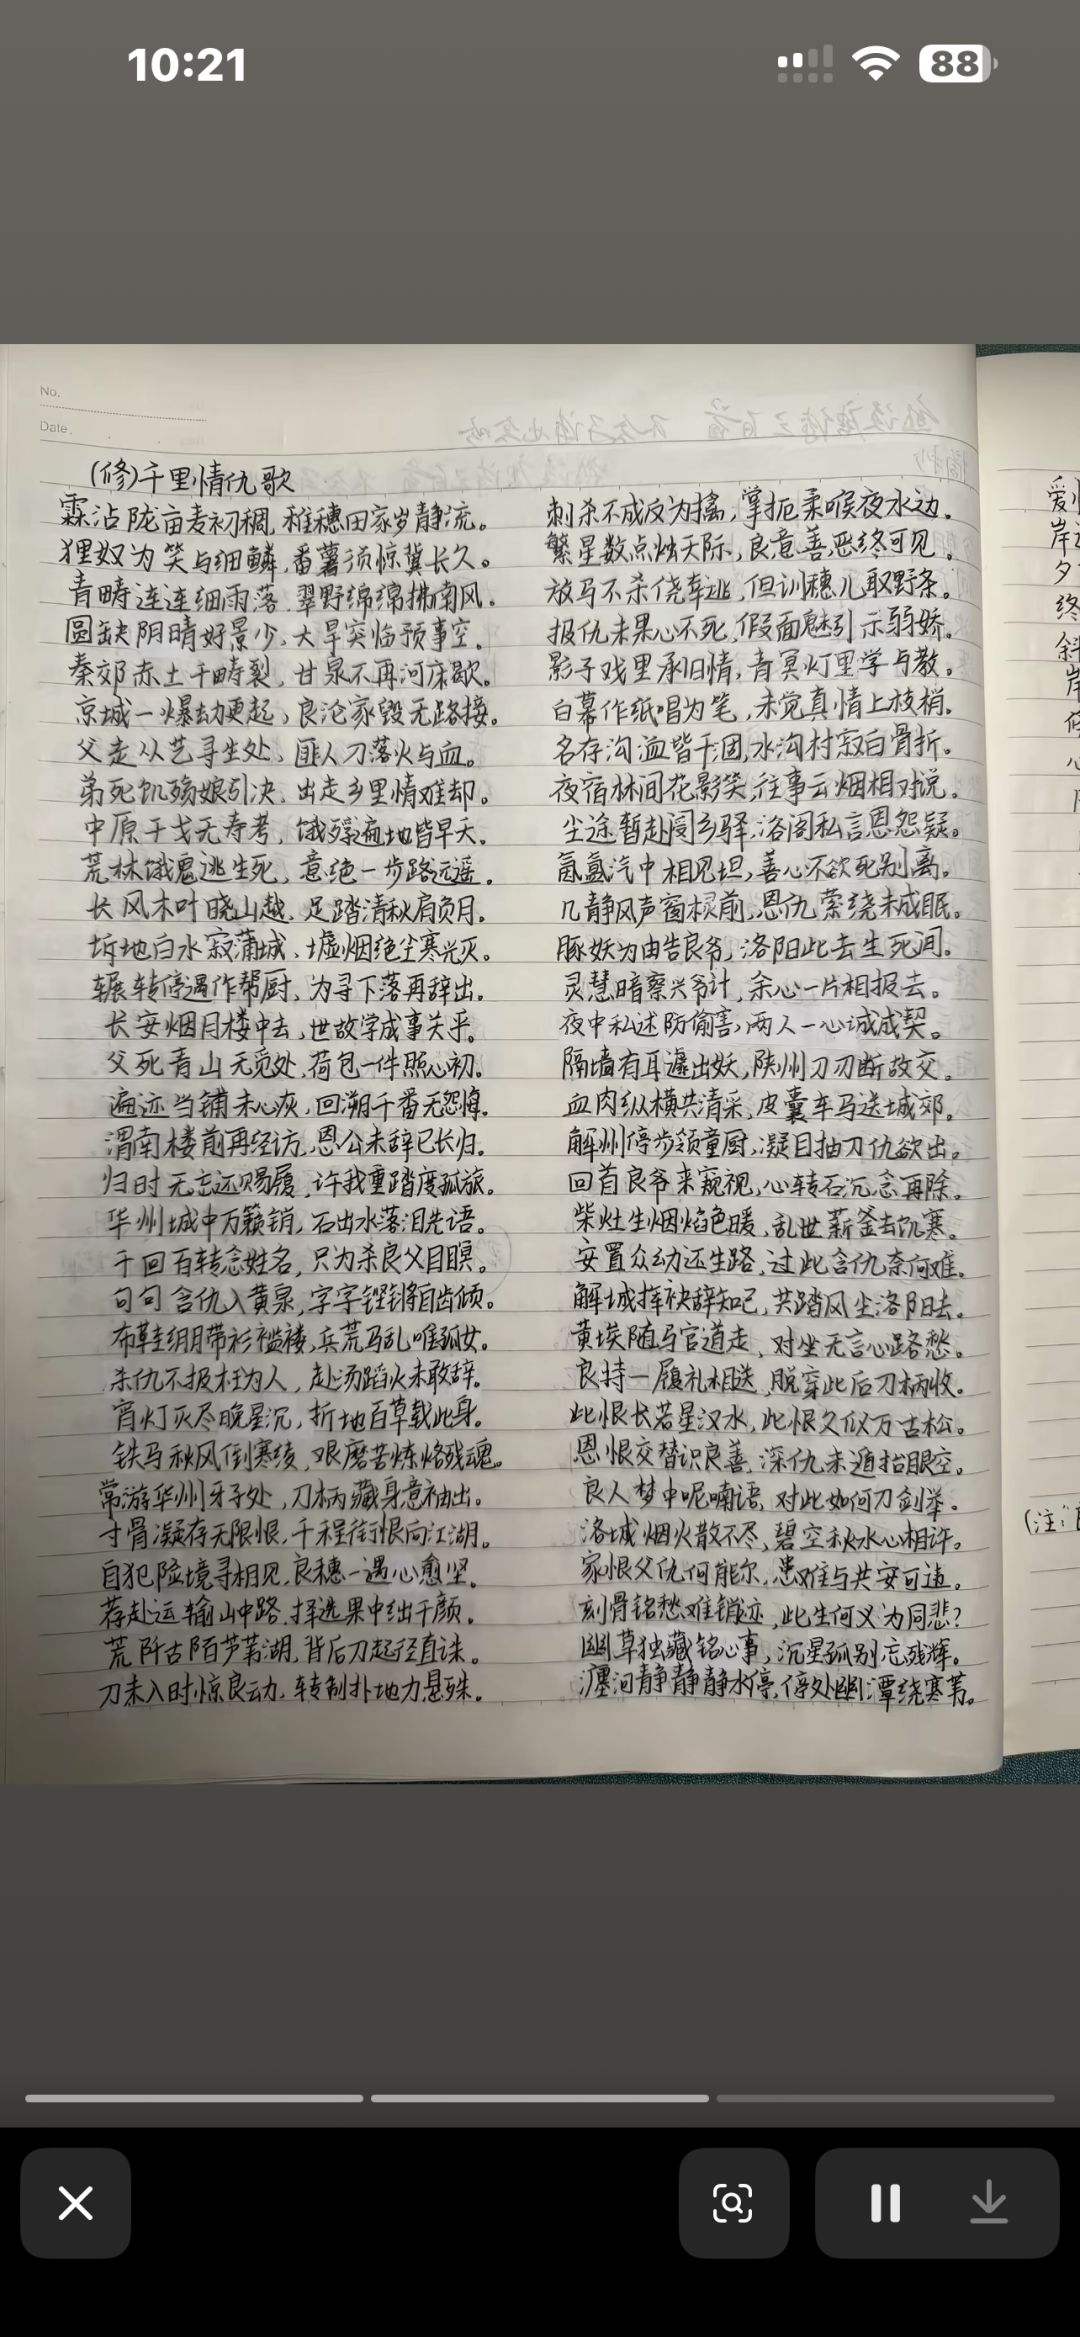 10:21
88
No.
Date.
(修)千里情仇歌
霖沾陇亩麦初稠,稚穗田家岁静流。
狸奴为笑与细鳞,番薯须惊冀长久。
青畴连连细雨落,翠野绵绵拂南风。
圆缺阴晴好景少,大旱突临预事空。
秦郊赤土千畴裂,甘泉不再河床歇。
京城一爆劫更起,良沦家毁无路接。
父走从艺寻生处,匪人刀落火与血。
弟死饥殇娘引决,出走乡里情难却。
中原干戈无寿考,饿殍遍地皆早夭。
荒林饿鬼逃生死,意绝一步路远遥。
长风木叶晓山越,足踏清秋肩负月。
坼地白水寂蒲城,墟烟绝尘寒光灭。
辗转停遇作帮厨,为寻下落再辞出。
长安烟月楼中去,世故学成事关乎。
父死青山无觅处,荷包一件照心初。
遍迹当铺未心灰,回溯千番无怨悔。
渭南楼前再经访,恩公未辞已长归。
归时无忘还赐履,许我重踏度孤旅。
华州城中万籁销,石出水落泪先语。
千回百转念姓名,只为杀良父目瞑。
句句含仇入黄泉,字字铿锵百齿倾。
布鞋绢带衫褴褛,兵荒马乱唯孤女。
杀仇不报枉为人,赴汤蹈火未敢辞。
宵灯灭尽晚星沉,折地百草载此身。
铁马秋风倒寒绫,艰磨苦炼烙残魂。
常游华州牙子处,刀柄藏身意袖出。
寸骨凝存无限恨,千程衔恨向江湖。
自犯险境寻相见,良穗一遇心愈坚。
荐赴运输山中路,择选果中绌于颜。
荒阡古陌芦苇湖,背后刀起径直诛。
刀未入时惊良动,转制扑地力悬殊。
刺杀不成反为擒,掌扼柔喉夜水边。
繁星数点烛天际,良意善恶终可见。
放马不杀侥幸逃,但训穗儿取野条。
报仇未果心不死,假面魅引示弱娇。
影子戏里承旧情,青冥灯里学与教。
白幕作纸唱为笔,未觉真情上枝梢。
名存沟洫皆干涸,水沟村寂白骨折。
夜宿林间花影笑,往事云烟相对说。
尘途暂赴阌乡驿,洛阁私言恩怨疑。
氤氲汽中相见坦,善心不欲死别离。
几静风声窗棂前,恩仇萦绕未成眠。
豚妖为由告良爷,洛阳此去生死间。
灵慧暗察兴爷计,余心一片相报去。
夜中私述防偷害,两人一心诚成契。
隔墙有耳遽出妖,陕州刀刃断故交。
血肉纵横共清采,皮囊车马送城郊。
解州停步领童厨,凝目抽刀仇欲出。
回首良爷来窥视,心转石沉念再除。
柴灶生烟焰色暖,乱世薪釜去饥寒。
安置众幼还生路,过此含仇奈何难。
解城挥袂辞知己,共踏风尘洛阳去。
黄埃随马官道走,对坐无言心路愁。
良持一履礼相送,脱穿此后刀柄收。
此恨长若星汉水,此恨久似万古松。
恩恨交替识良善,深仇未遁抬眼空。
良人梦中呢喃语,对此如何刀剑举。
洛城烟火散不尽,碧空秋水心相许。
家恨父仇何能尔,患难与共安可违。
刻骨铭愁难销迹,此生何又为同悲?
幽草独藏铭心事,沉星孤别忘残辉。
瀍河静静静水停,停处幽潭绕寒苇。
爱
岸
夕
终
斜
岸
心
(注: